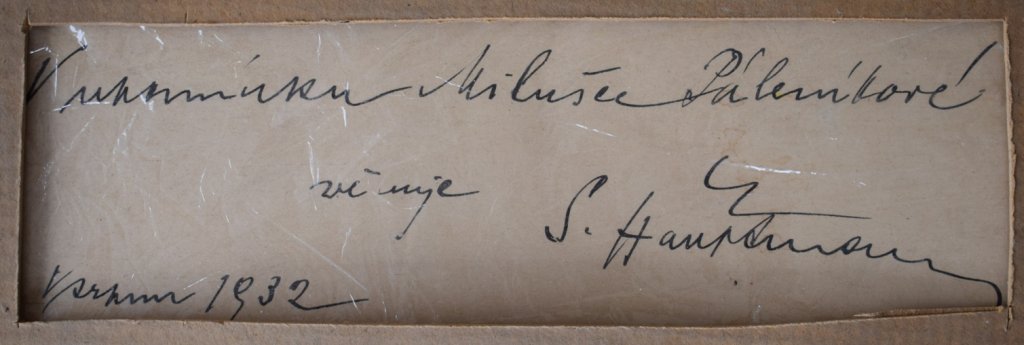 V upomínku Milušce Páleníkové
věnuje
S. Hauptman
V srpnu 1932